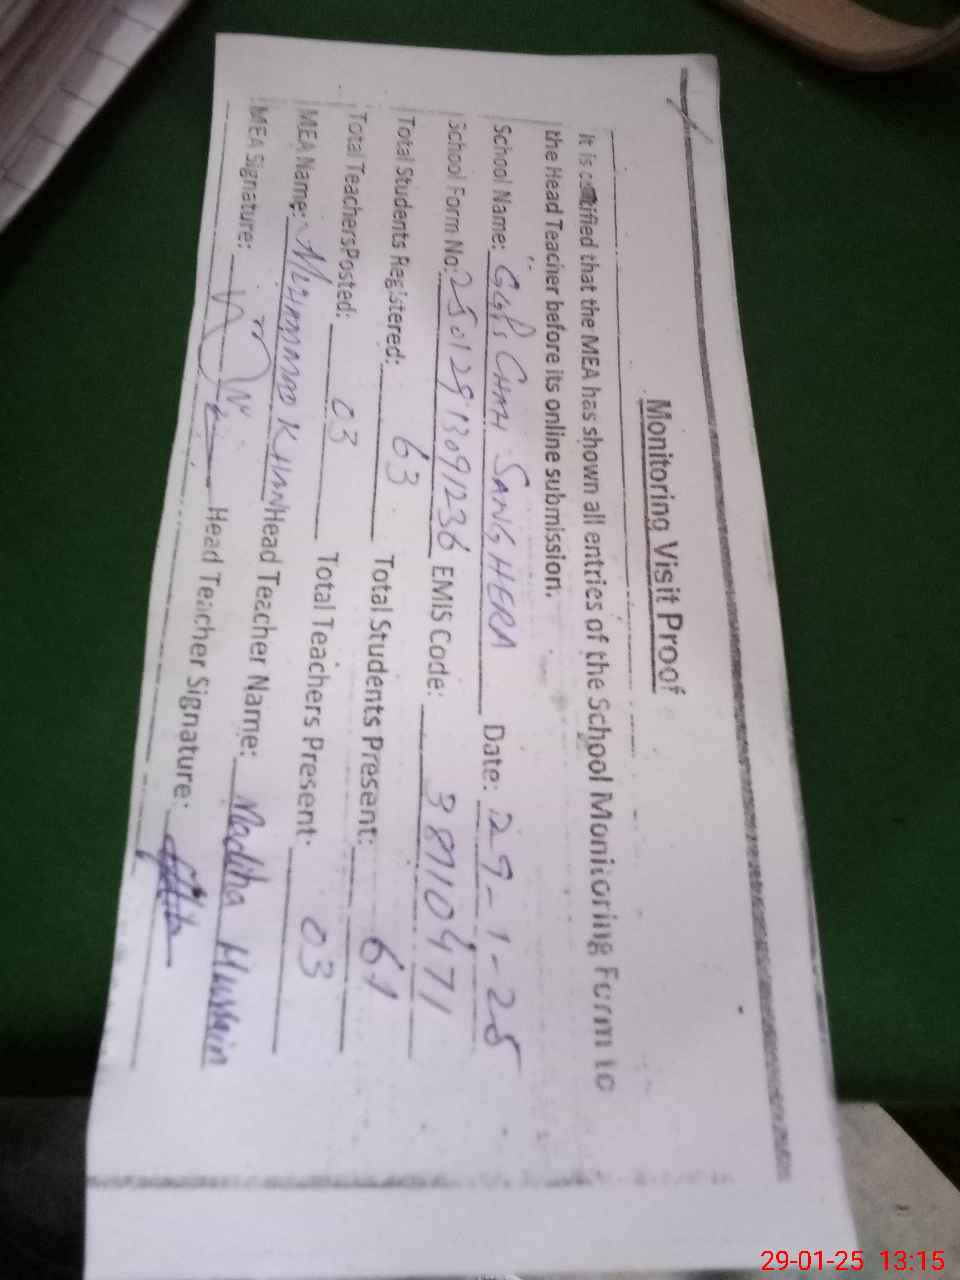 Monitoring Visit Proof
It is certified that the MEA has shown all entries of the School Monitoring Form to
the Head Teacher before its online submission.
School Name: GGPS CHAH SANGHERA Date: 29-1-25
School Form No: 25012913091236 EMIS Code: 38110471
Total Students Registered: 63 Total Students Present: 61
Total Teachers Posted: 03 Total Teachers Present: 03
MEA Name: MUHAMMAD KHAN Head Teacher Name: Madiha Hussain
MEA Signature: Head Teacher Signature:
29-01-25 13:15